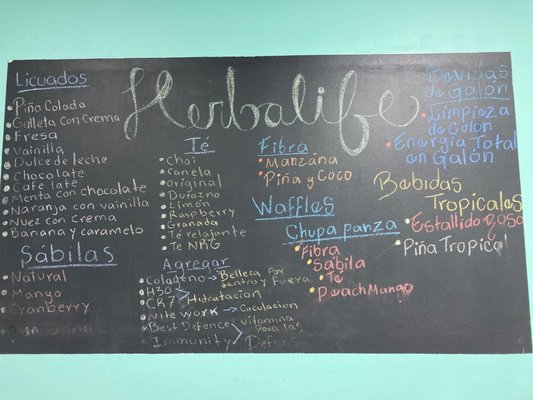 Herbalife
Licuados
Piña Colada
Galleta con Crema
Fresa
Vainilla
Dulce de leche
Chocolate
Cafe late
Menta con chocolate
Naranja con vainilla
Nuez con Crema
Banana y caramelo
Sábilas
Natural
Mango
Cranberry
Té
Chai
Canela
Original
Durazno
Limón
Raspberry
Granada
Té relajante
Te NRG
Agregar
Colageno → Belleza por
dentro y fuera
H30
CR7
Hidratacion
Nite work → Circulacion
Best Defence
Immunity
vitamina
Para las
Fibra
Manzana
Piña y Coco
Waffles
Chupa panza
Fibra
Sabila
Te
Peach Mango
Bevidas
de Galón
Limpieza
de Colon
Energia Total
en Galón
Bebidas
Tropicales
Estallido Rosa
Piña Tropical